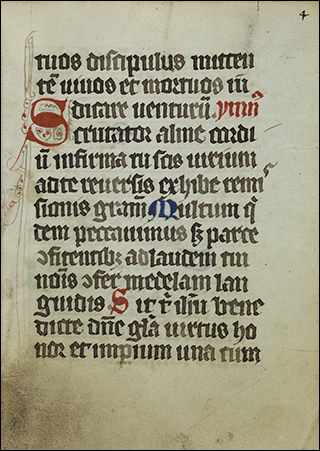 4
tuos discipulus mitten
tē viuos et mortuos iū
dicare venturū ymnꝰ
Scrutator alme cordi
ū infirma tu scis virium
ad te reuersis exhibe remiſ
sionis gr̄am Multum q̄
dem peccauimus sꝫ parce
ꝯfitentibꝫ ad laudem tui
noīs ꝯfer medelam lan
guidis Sit t̄ ih̄u bene
dicte dn̄e glā virtus ho
nor et imꝑium una cum